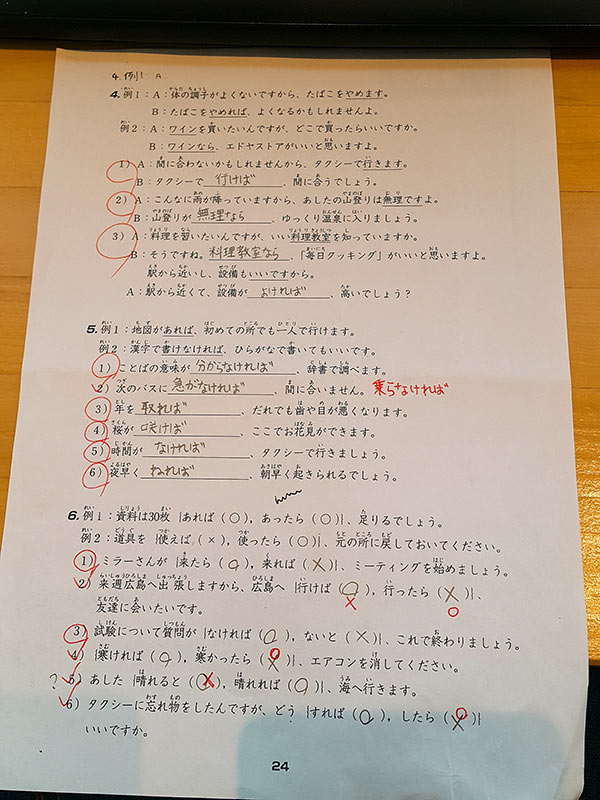 4. 例1 A
4. 例1：A：体の調子がよくないですから、たばこをやめます。
B：たばこをやめれば、よくなるかもしれませんよ。
例2：A：ワインを買いたいんですが、どこで買ったらいいですか。
B：ワインなら、エドヤストアがいいと思いますよ。
1）A：間に合わないかもしれませんから、タクシーで行きます。
B：タクシーで 行けば、間に合うでしょう。
2）A：こんなに雨が降っていますから、あしたの山登りは無理ですよ。
B：山登りが 無理なら、ゆっくり温泉に入りましょう。
3）A：料理を習いたいんですが、いい料理教室を知っていますか。
B：そうですね。料理教室なら、「毎日クッキング」がいいと思いますよ。
駅から近いし、設備もいいですから。
A：駅から近くて、設備が よければ、高いでしょう？
5. 例1：地図があれば、初めての所でも一人で行けます。
例2：漢字で書けなければ、ひらがなで書いてもいいです。
1）ことばの意味が 分からなければ、辞書で調べます。
2）次のバスに 急がなければ、間に合いません。 乗らなければ
3）年を 取れば、だれでも歯や目が悪くなります。
4）桜が 咲けば、ここでお花見ができます。
5）時間が なければ、タクシーで行きましょう。
6）夜早く ねれば、朝早く起きられるでしょう。
6. 例1：資料は30枚｛あれば（○），あったら（○）｝、足りるでしょう。
例2：道具を｛使えば（×），使ったら（○）｝、元の所に戻しておいてください。
1）ミラーさんが｛来たら（○），来れば（×）｝、ミーティングを始めましょう。
2）来週広島へ出張しますから、広島へ｛行けば（○），行ったら（×）｝、
× ○
友達に会いたいです。
3）試験について質問が｛なければ（○），ないと（×）｝、これで終わりましょう。
4）｛寒ければ（○），寒かったら（×）｝、エアコンを消してください。
? 5）あした｛晴れると（○），晴れれば（○）｝、海へ行きます。
6）タクシーに忘れ物をしたんですが、どう｛すれば（○），したら（×）｝
いいですか。
24